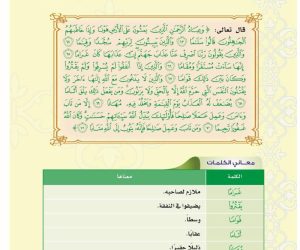 قال تعالى: ﴿ وَعِبَادُ الرَّحْمَٰنِ الَّذِينَ يَمْشُونَ عَلَى الْأَرْضِ هَوْنًا وَإِذَا خَاطَبَهُمُ
الْجَاهِلُونَ قَالُوا سَلَامًا ﴿٦٣﴾ وَالَّذِينَ يَبِيتُونَ لِرَبِّهِمْ سُجَّدًا وَقِيَامًا ﴿٦٤﴾
وَالَّذِينَ يَقُولُونَ رَبَّنَا اصْرِفْ عَنَّا عَذَابَ جَهَنَّمَ إِنَّ عَذَابَهَا كَانَ غَرَامًا ﴿٦٥﴾
إِنَّهَا سَاءَتْ مُسْتَقَرًّا وَمُقَامًا ﴿٦٦﴾ وَالَّذِينَ إِذَا أَنفَقُوا لَمْ يُسْرِفُوا وَلَمْ يَقْتُرُوا
وَكَانَ بَيْنَ ذَٰلِكَ قَوَامًا ﴿٦٧﴾ وَالَّذِينَ لَا يَدْعُونَ مَعَ اللَّهِ إِلَٰهًا آخَرَ وَلَا
يَقْتُلُونَ النَّفْسَ الَّتِي حَرَّمَ اللَّهُ إِلَّا بِالْحَقِّ وَلَا يَزْنُونَ وَمَن يَفْعَلْ ذَٰلِكَ يَلْقَ أَثَامًا
﴿٦٨﴾ يُضَاعَفْ لَهُ الْعَذَابُ يَوْمَ الْقِيَامَةِ وَيَخْلُدْ فِيهِ مُهَانًا ﴿٦٩﴾ إِلَّا مَن تَابَ
وَآمَنَ وَعَمِلَ عَمَلًا صَالِحًا فَأُولَٰئِكَ يُبَدِّلُ اللَّهُ سَيِّئَاتِهِمْ حَسَنَاتٍ وَكَانَ اللَّهُ
غَفُورًا رَّحِيمًا ﴿٧٠﴾ وَمَن تَابَ وَعَمِلَ صَالِحًا فَإِنَّهُ يَتُوبُ إِلَى اللَّهِ مَتَابًا ﴿٧١﴾
معاني الكلمات
الكلمة معناها
غَرَامًا ملازم لصاحبه.
يَقْتُرُوا يضيقوا في النفقة.
قَوَامًا وسطًا.
أَثَامًا عقابًا.
مُهَانًا ذليلًا حقيرًا.